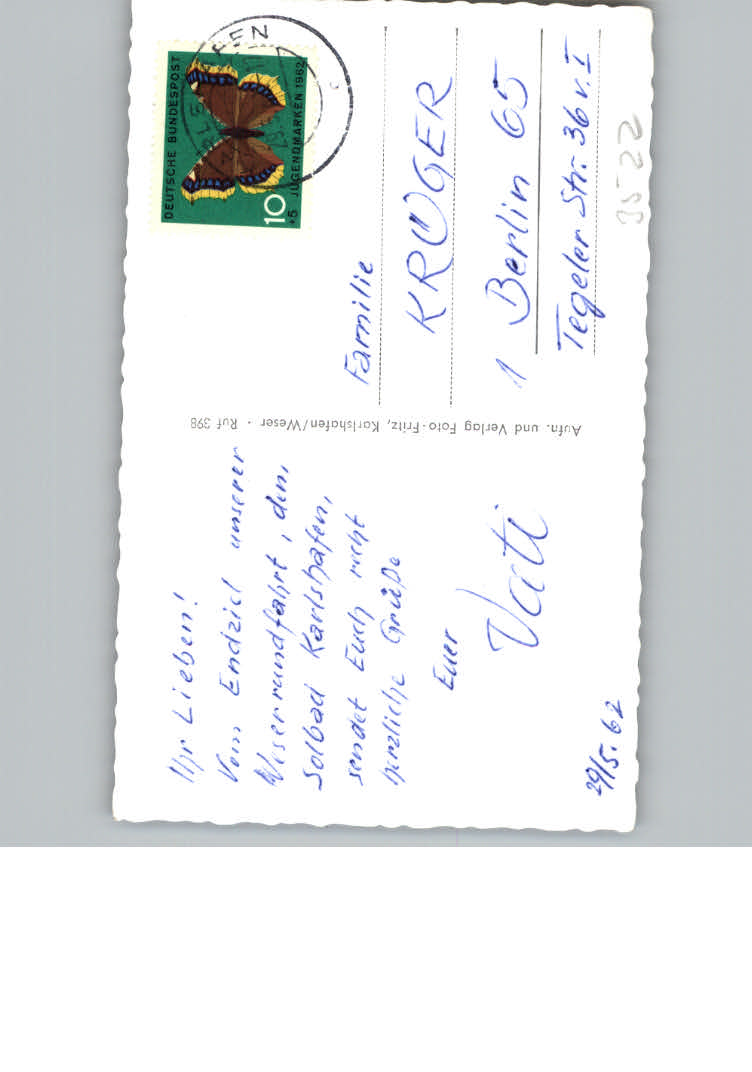 Ihr Lieben!
Vom Endziel unserer
Weserrundfahrt, dem
Solbad Karlshafen,
sendet Euch recht
herzliche Grüße
Euer
Vati
29/5.62
Aufn. und Verlag Foto-Fritz, Karlshafen/Weser · Ruf 398
DEUTSCHE BUNDESPOST
10
+5 JUGENDMARKEN 1962
Familie
KRÜGER
1 Berlin 65
Tegeler Str. 36 v. I
3522